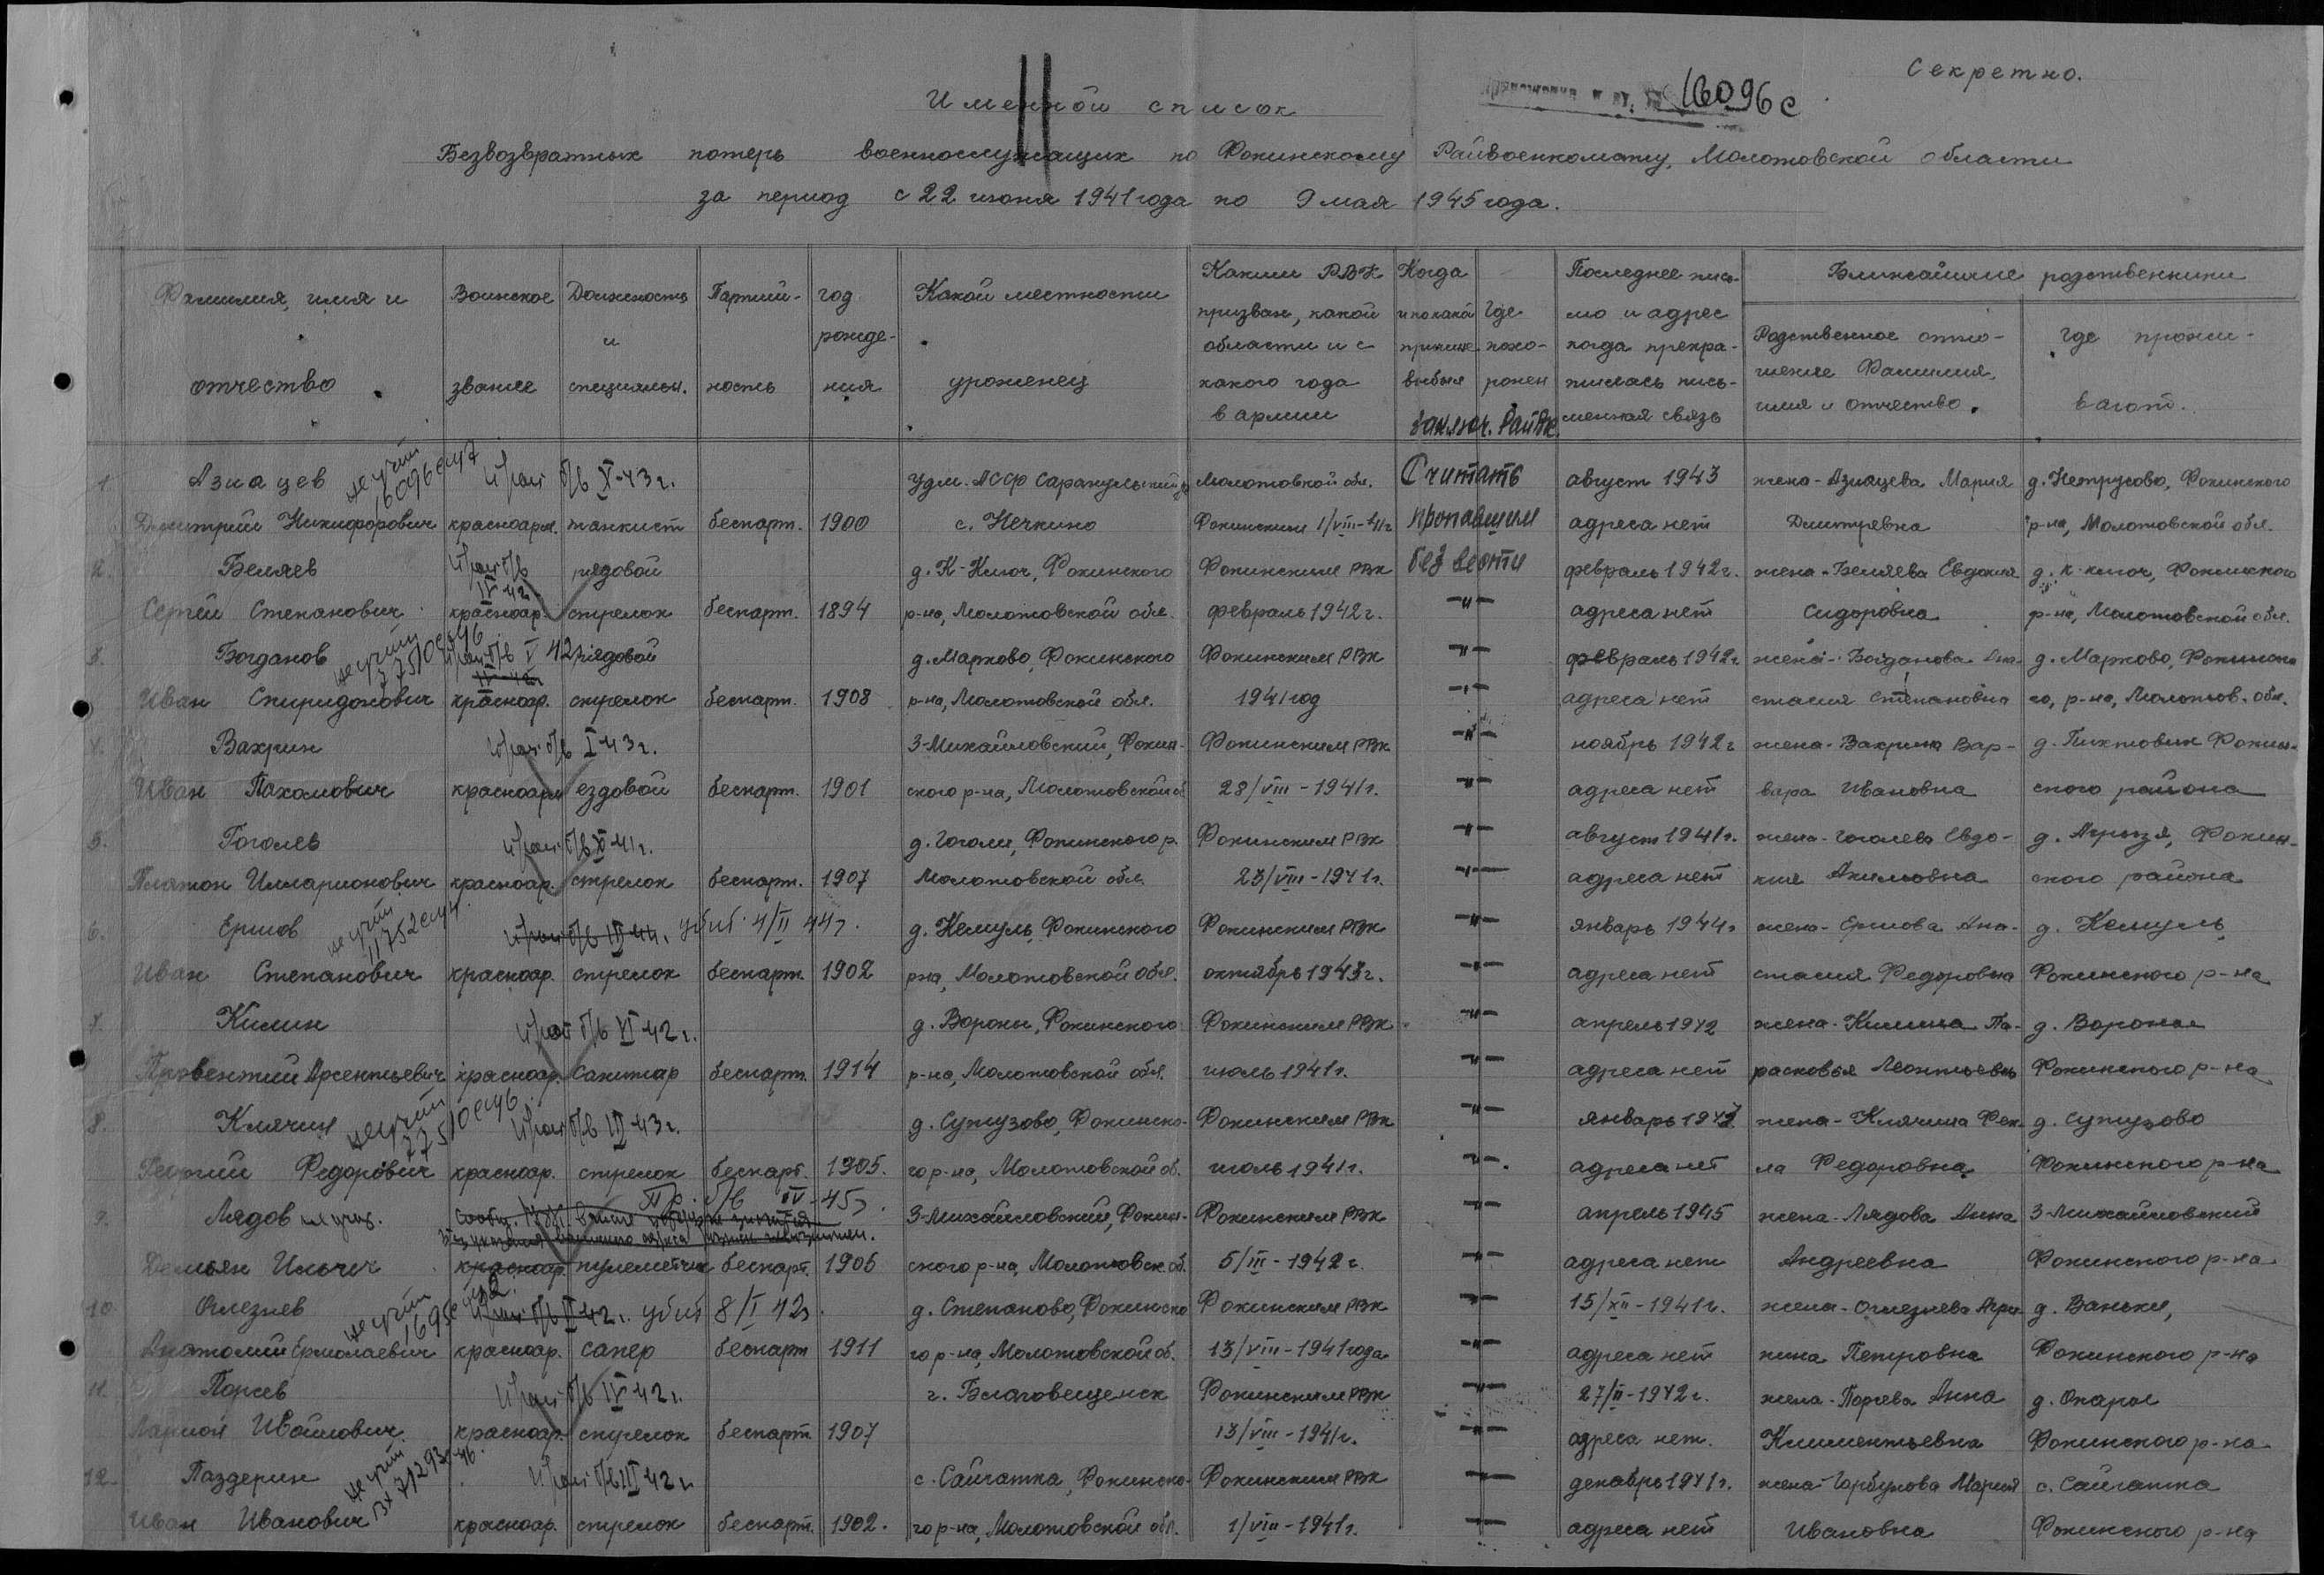 Секретно.
16096с
Именной список
Безвозвратных потерь военнослужащих по Фокинскому Райвоенкомату, Молотовской области
за период с 22 июня 1941 года по 9 мая 1945 года.
Фамилия, имя и отчество
Воинское звание
Должность и специальн.
Партийность
год рождения
Какой местности уроженец
Каким РВК призван, какой области и с какого года в армии
Когда и по какой причине выбыл
Где похоронен
Заключ. Райвк.
Последнее письмо и адрес когда прекратилась письменная связь
Ближайшие родственники
Родственное отношение Фамилия, имя и отчество.
где прожив-
1. Азиацев не учтён 16096 X-43г. Удм. АССР Сарапульский Молотовской обл. Считать август 1943 жена-Азиацева Мария д. Нетрусово, Фокинского
Дмитрий Никифорович красноарм. танкист беспарт. 1900 с. Нечкино Фокинским 1/VIII-41г пропавшим адреса нет Дмитревна р-на, Молотовской обл.
2. Беляев п/б IV-42г. рядовой д. К-Ключ, Фокинского Фокинским РВК без вести февраль 1942г. жена-Беляева Евдокия д. К-ключ, Фокинского
Сергей Степанович красноар. стрелок беспарт. 1894 р-на, Молотовской обл. февраль 1942г. -"- адреса нет Сидоровна р-на, Молотовской обл.
3. Богданов не учтён п/б V 42 рядовой д. Марково, Фокинского Фокинским РВК -"- февраль 1942г жена-Богданова Ана- д. Марково, Фокинско
Иван Спиридонович красноар. стрелок беспарт. 1908 р-на, Молотовской обл. 1941 год -"- адреса нет стасия Степановна го, р-на, Молотов. обл.
4. Вахрин п/б I-43г. З-Михайловский, Фокин- Фокинским РВК -"- ноябрь 1942г жена-Вахрина Вар- д. Пихтовик Фокин-
Иван Пахомович красноарм ездовой беспарт. 1901 ского р-на, Молотовской об 28/VIII-1941г. -"- адреса нет вара Ивановна ского района
5. Гоголев п/б XI-41г. д. Гоголи, Фокинского р. Фокинским РВК -"- август 1941г. жена-Гоголева Евдо- д. Агрызя, Фокин-
Платон Илларионович красноар. стрелок беспарт. 1907 Молотовской обл. 23/VIII-1941г. -"- адреса нет кия Акимовна ского района
6. Ершов не учтён 11752 убит 4/II 44г. д. Кемуль, Фокинского Фокинским РВК -"- январь 1944г жена-Ершова Ана- д. Кемуль
Иван Степанович красноар. стрелок беспарт. 1902 рна, Молотовской обл. октябрь 1943г. -"- адреса нет стасия Федоровна Фокинского р-на
7. Килин п/б VI-42г. д. Вороны, Фокинского Фокинским РВК -"- апрель 1942 жена-Килина Па- д. Вороны
Провентий Арсентьевич красноар. санитар беспарт. 1914 р-на, Молотовской обл. июль 1941г. -"- адреса нет расковья Леонтьевна Фокинского р-на
8. Клячин не учтён п/б III-43г. д. Сутузово, Фокинско- Фокинским РВК -"- январь 1943 жена-Клячина Фек- д. Сутузово
Георгий Федорович красноар. стрелок беспарт. 1905. го р-на, Молотовской об. июль 1941г. -"- адреса нет ла Федоровна Фокинского р-на
9. Лядов п/б IV-45г. З-Михайловский, Фокин- Фокинским РВК -"- апрель 1945 жена-Лядова Анна З-Михайловский
Демьян Ильич красноар. пулеметчик беспарт. 1906 ского р-на, Молотовск. об. 5/III-1942г. -"- адреса нет Андреевна Фокинского р-на
10 Оглезнев не учтён убит 8/I 42г. д. Степаново, Фокинско Фокинским РВК -"- 15/XII-1941г. жена-Оглезнева Агри- д. Ваньки,
Анатолий Ермолаевич красноар. сапер беспарт 1911 го р-на, Молотовской об. 13/VIII-1941 года -"- адреса нет пина Петровна Фокинского р-на
11. Порсев п/б IV 42г. г. Благовещенск Фокинским РВК -"- 27/II-1942г. жена-Порсева Анна д. Опары
Ларион красноар. стрелок беспарт. 1907 13/VIII-1941г. -"- адреса нет. Климентьевна Фокинского р-на
12. Паздерин не учтён п/б III 42г с. Сайгатка, Фокинско- Фокинским РВК -"- декабрь 1941г. жена-Горбунова Мария с. Сайгатка
Иван Иванович красноар. стрелок беспарт. 1902. го р-на, Молотовской обл. 1/VIII-1941г. -"- адреса нет Ивановна Фокинского р-на